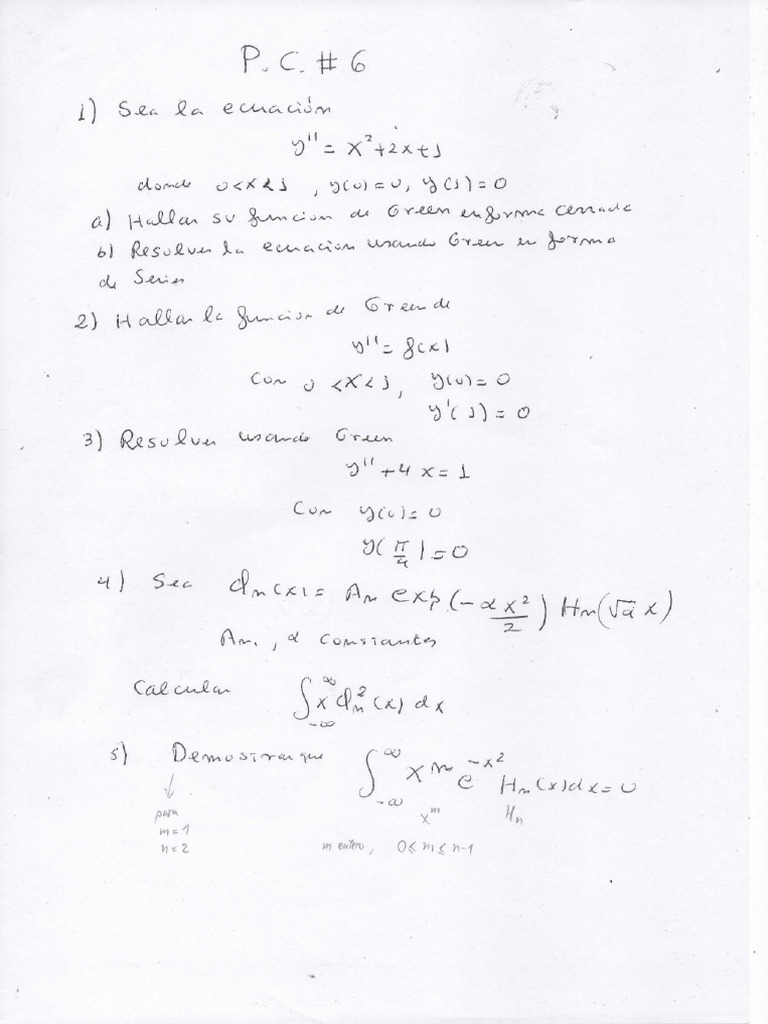 P. C. # 6
1) Sea la ecuación
y'' = x² + 2x + 1
donde 0 < x < 1 , y(0) = 0, y(1) = 0
a) Hallar su funcion de Green en forma cerrada
b) Resolver la ecuacion usando Green en forma
de Series
2) Hallar la funcion de Green de
y'' = f(x)
Con 0 < x < 1, y(0) = 0
y'(1) = 0
3) Resolver usando Green
y'' + 4x = 1
Con y(0) = 0
y(π/4) = 0
4) Sea ϕn(x) = An exp(-αx²/2) Hn(√α x)
An. , α constantes
Calcular ∫_{-∞}^{∞} x ϕn²(x) dx
5) Demostrar que ∫_{-∞}^{∞} x^m e^{-x²} Hn(x) dx = 0
x^m Hn
para
m = 1
n = 2 m entero, 0 ≤ m ≤ n-1